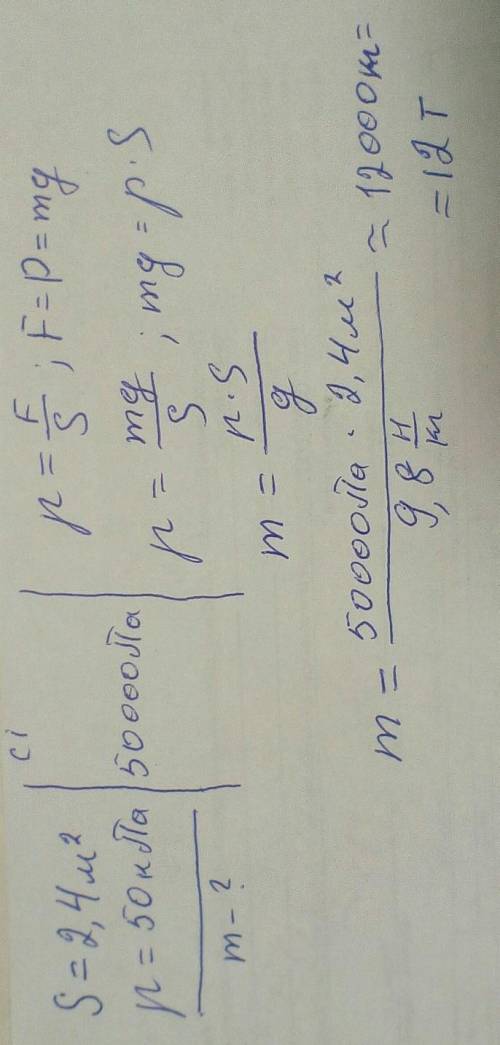 S = 2,4 м²
p = 50 кПа
m - ?
СІ
50000 Па
p = F/S ; F = P = mg
p = mg/S ; mg = p·S
m = p·S/g
m = 50000 Па · 2,4 м² / 9,8 Н/m ≈ 12000 m =
= 12 т